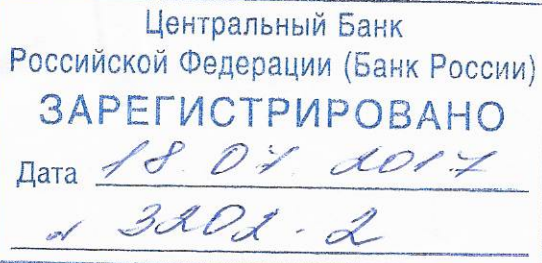 Центральный Банк
Российской Федерации (Банк России)
ЗАРЕГИСТРИРОВАНО
Дата 18.07.2017
N 3202-2